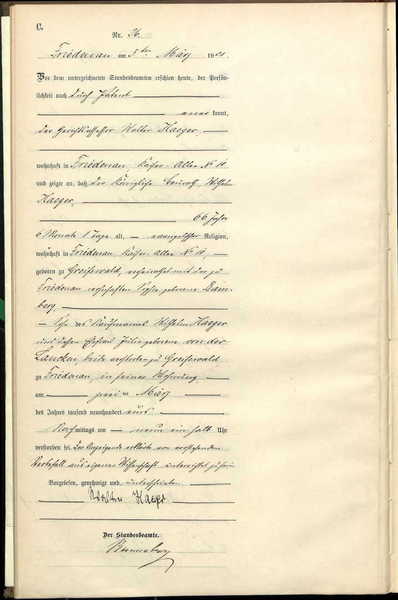 C.
Nr. 36.
Friedenau am 5ten März 19 01.
Vor dem unterzeichneten Standesbeamten erschien heute, der Persön-
lichkeit nach durch
kannt,
der Gerichtsassessor Walter Kaeger,
wohnhaft in Friedenau, Kaiser Allee No
und zeigte an, daß der Königliche Wilhelm
Kaeger,
66 Jahre
6 Monate 1 Tage alt, evangelischer Religion,
wohnhaft in Friedenau Kaiser Allee No
geboren zu Greifswald, verheirathet mit der zu
Friedenau verstorbenen geborene Dam-
berg,
Sohn des Kaufmanns Wilhelm Kaeger
und dessen Ehefrau geborene von der
Lancken, beide verstorben zu Greifswald
zu Friedenau, in seiner Wohnung
am zwei ten März
des Jahres tausend neunhundert eins
Nachmittags um neun ein halb Uhr
verstorben sei. Der Anzeigende erklärte von vorstehendem
Sterbefall aus eigener Wissenschaft unterrichtet zu sein.
Vorgelesen, genehmigt und unterschrieben
Walter Kaeger
Der Standesbeamte.